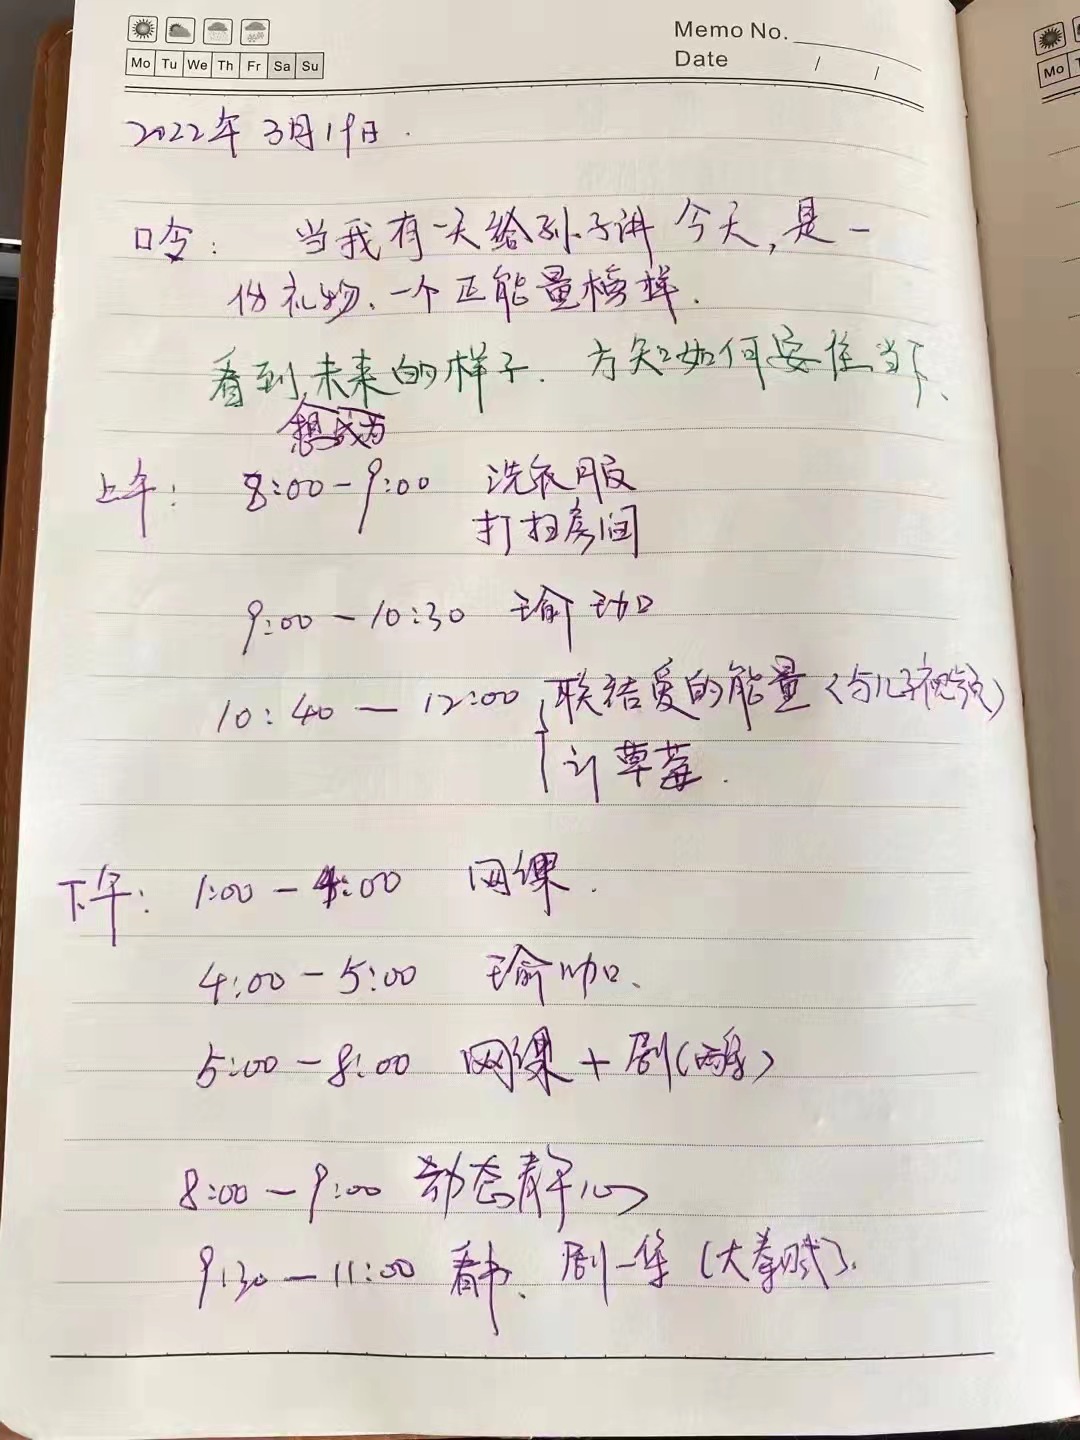 Memo No.
Mo Tu We Th Fr Sa Su
Date / /
Mo
2022年3月19日.
口令: 当我有一天给孙子讲今天,是一
份礼物、一个正能量榜样.
看到未来的样子. 方知如何安住当下、
想成为
上午: 8:00-9:00 洗衣服
打扫房间
9:00-10:30 瑜珈
10:40-12:00 联结爱的能量(与儿子视频)
草莓.
下午: 1:00-4:00 网课.
4:00-5:00 瑜咖、
5:00-8:00 网课+剧(两集)
8:00-9:00 动态静心
9:30-11:00 看书、剧一集(大秦赋).